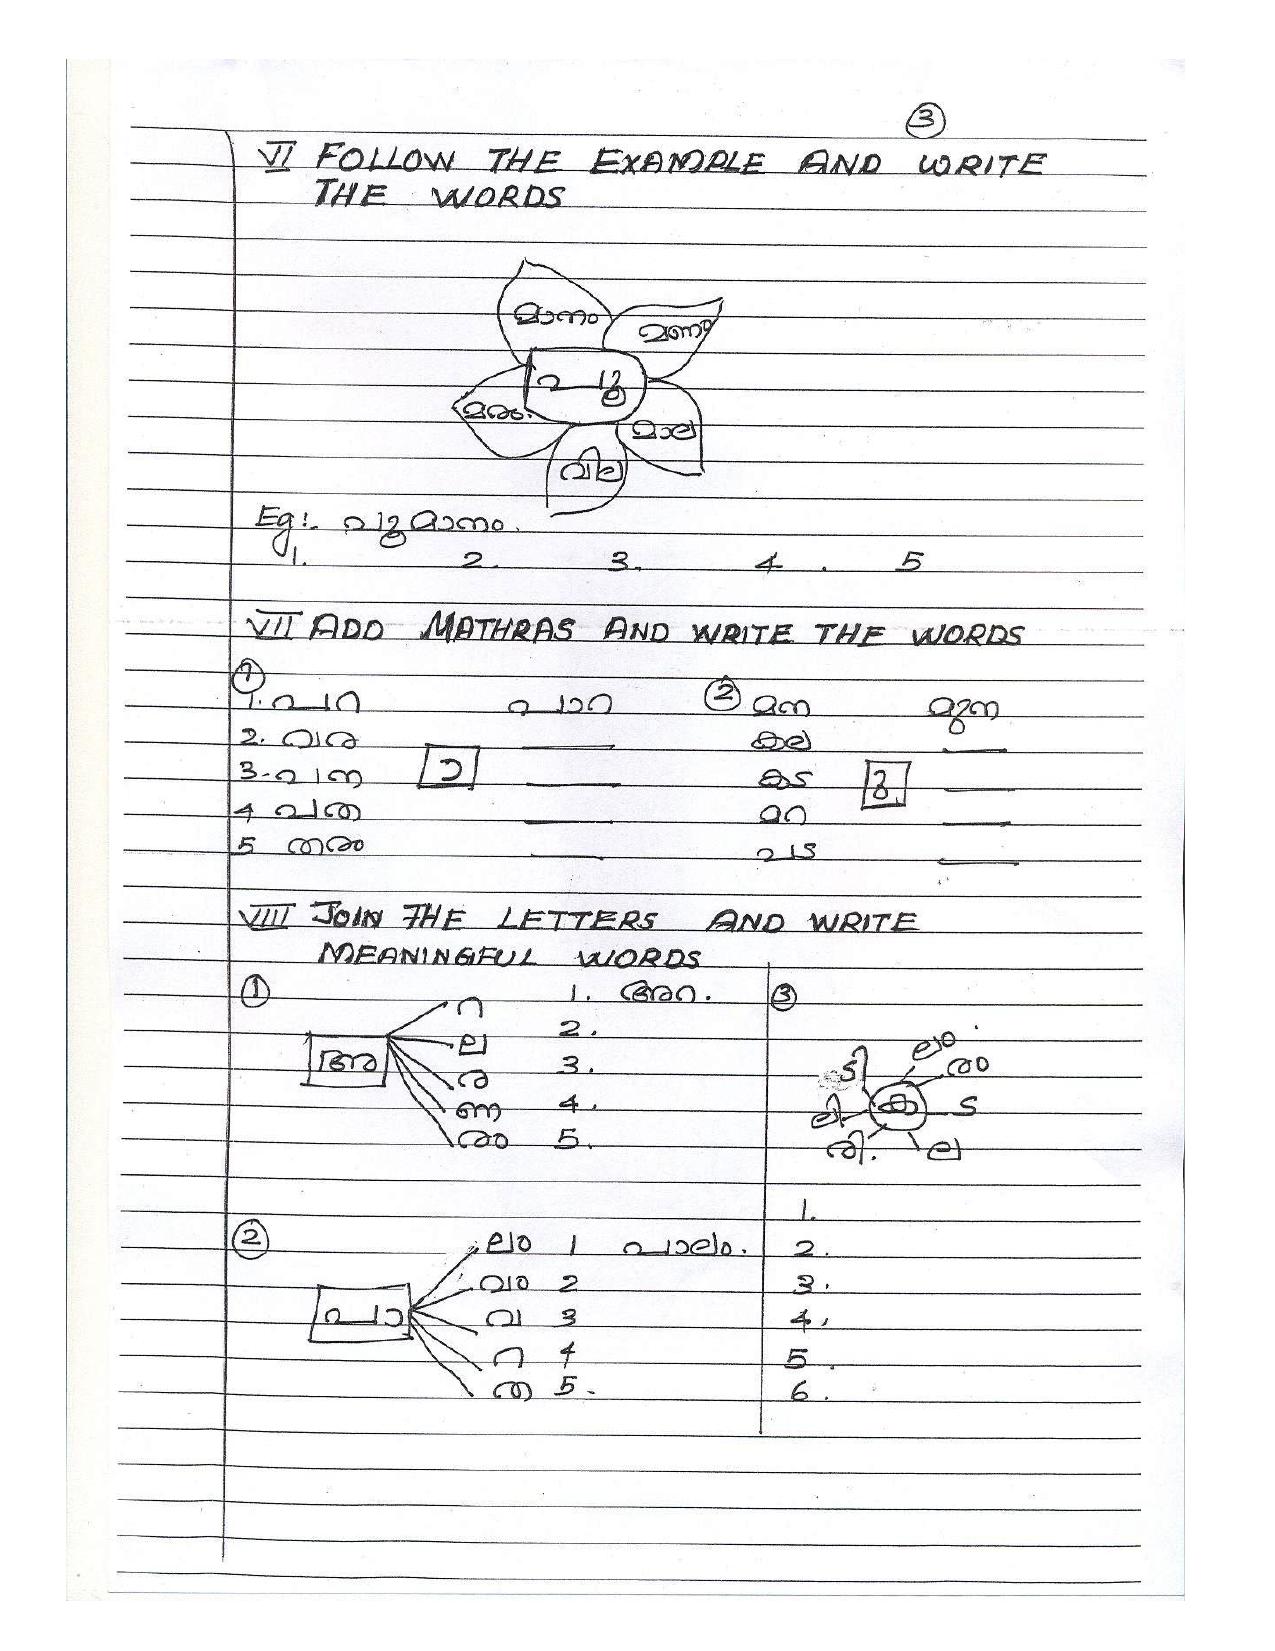 3
VI FOLLOW THE EXAMPLE AND WRITE
THE WORDS
മാനം
മണം
പുതു
മരം.
മാല
വില
Eg:. പുതുമാനം.
1. 2. 3. 4. 5
VII ADD MATHRAS AND WRITE THE WORDS
1 2
1. പറ പാറ മന മുന
2. വര കല
3- പന ാ കട ു
4 പത മറ
5 നരം പട
VIII JOIN THE LETTERS AND WRITE
MEANINGFUL WORDS
1
അ
റ 1. അറ.
ല 2.
ര 3.
ണ 4.
രം 5.
2
പാ
ലം 1 പാലം.
വം 2
വ 3
റ 4
ത 5.
3
ക
ടി ലം രം
ലി ട
രി. ല
1.
2.
3.
4.
5.
6.